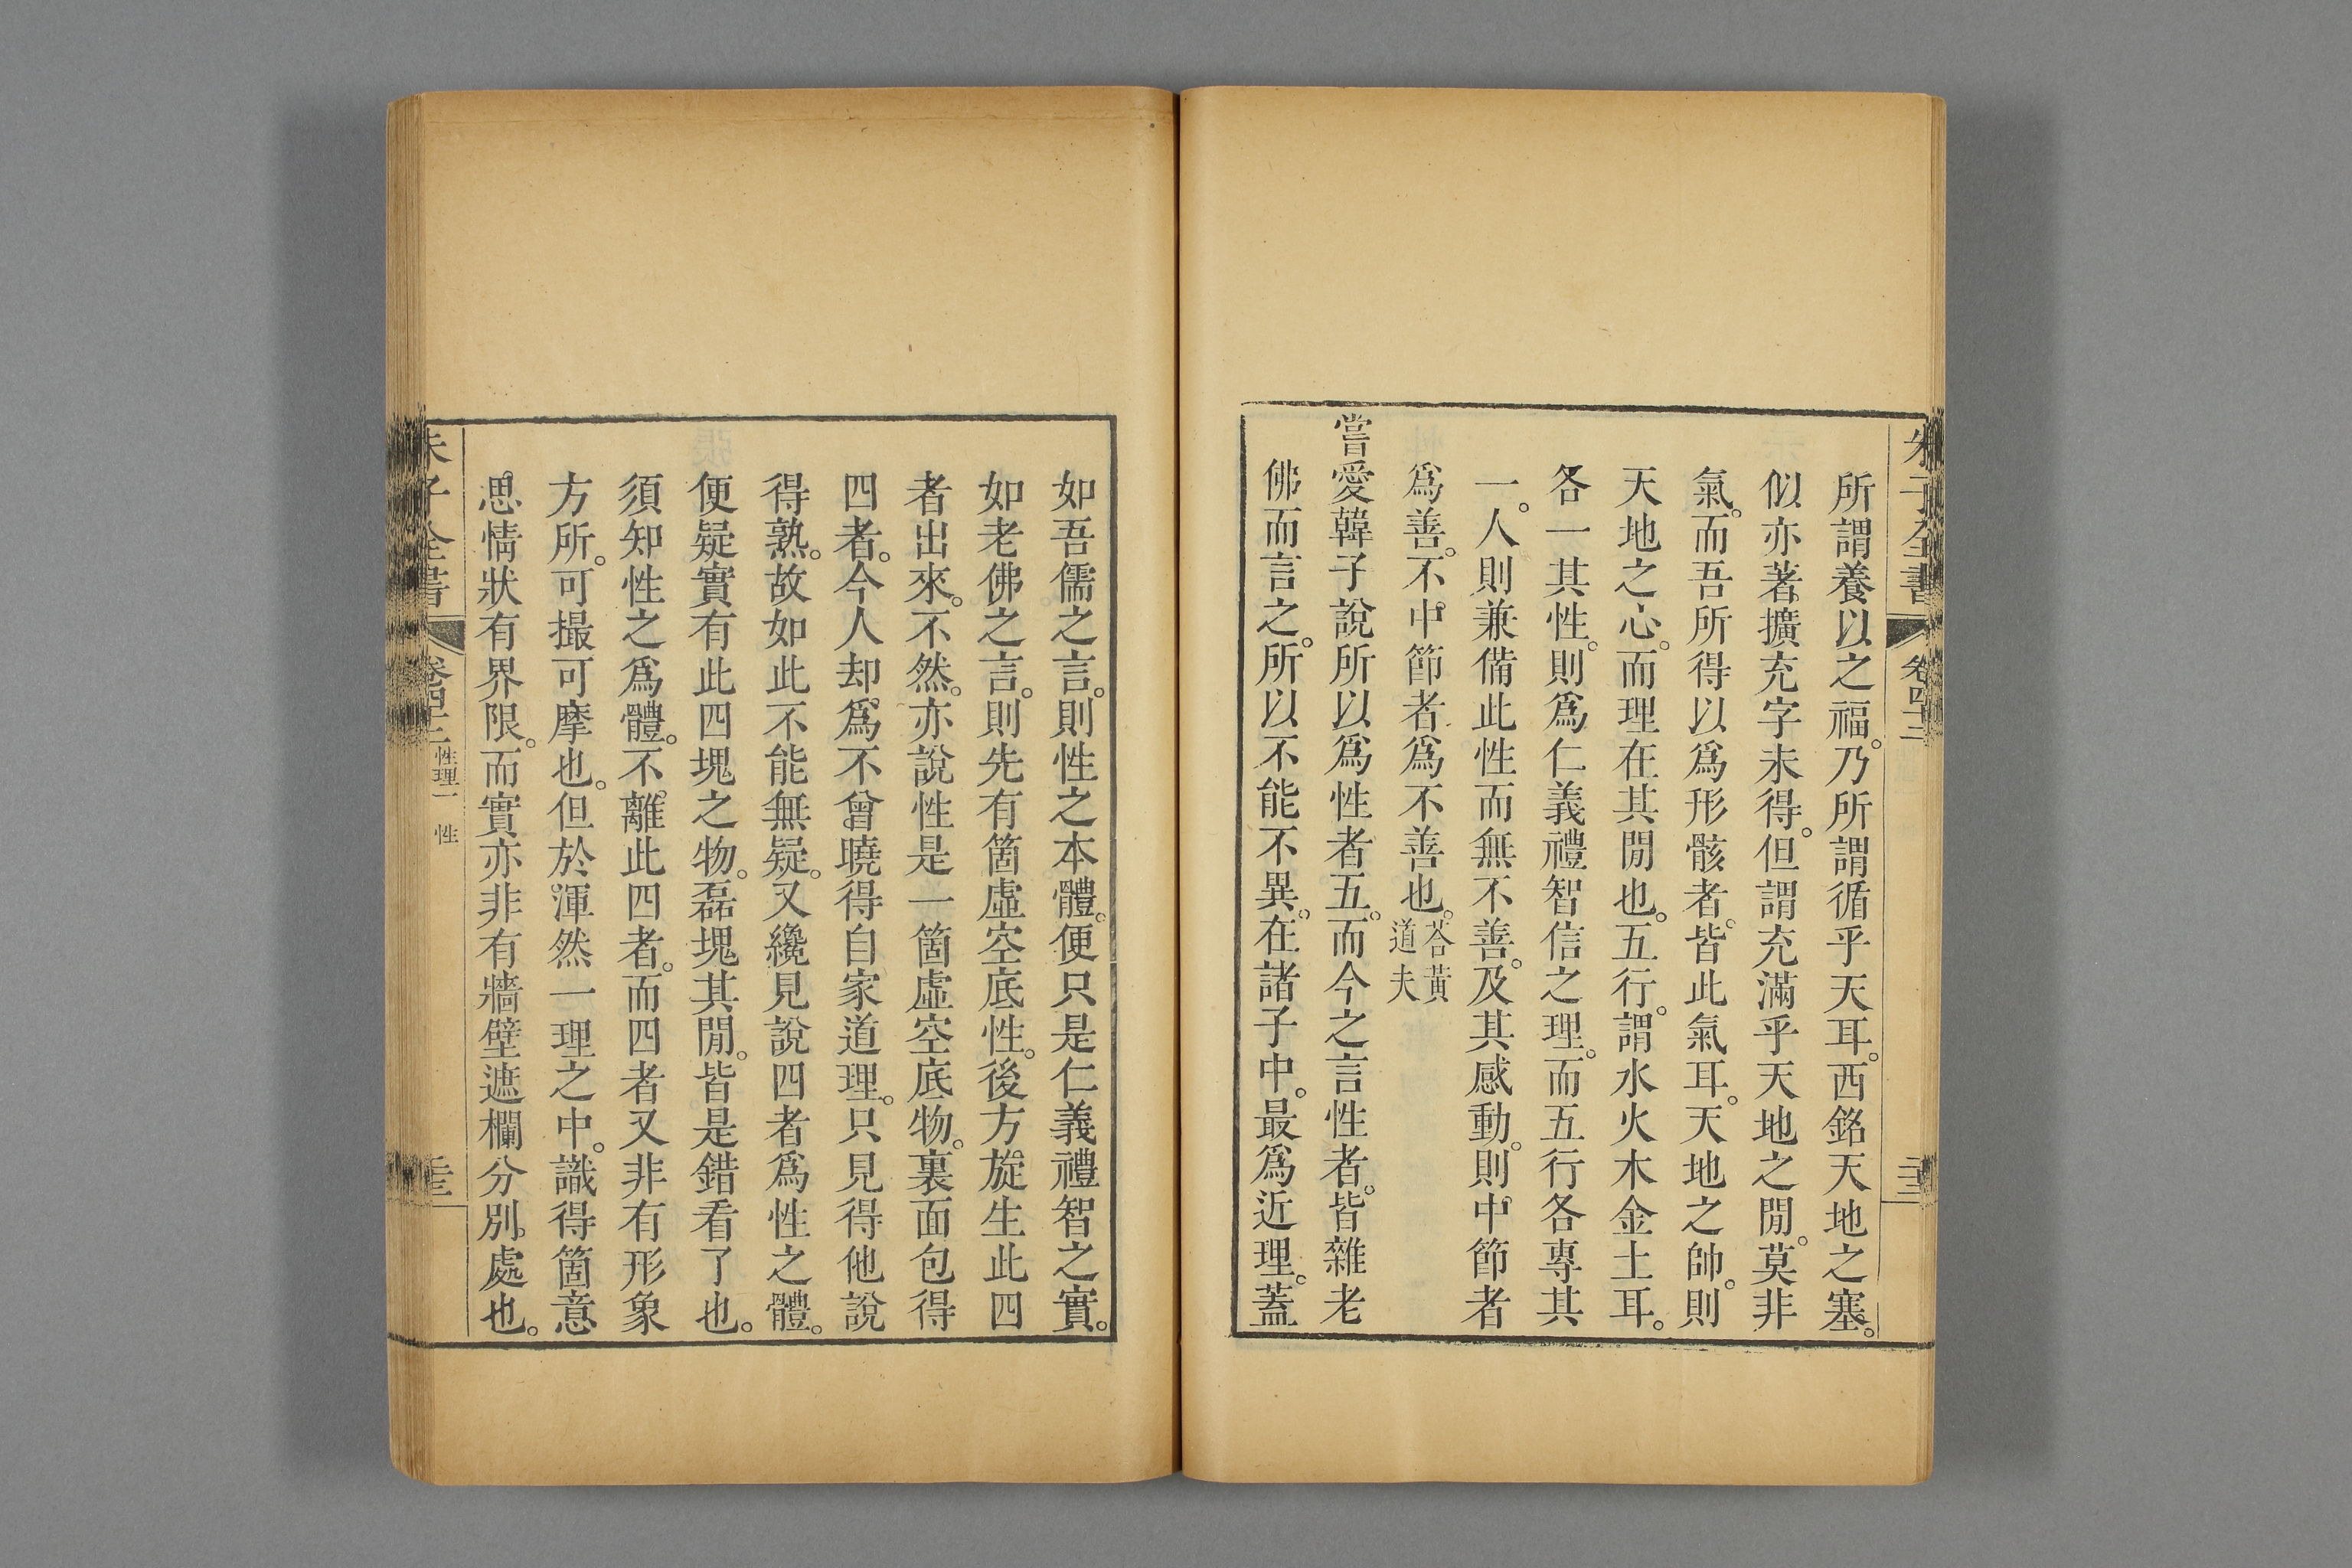 朱子全書 卷四十二
所謂養以之福。乃所謂循乎天耳。西銘天地之塞。
似亦著擴充字未得。但謂充滿乎天地之閒。莫非
氣。而吾所得以爲形骸者。皆此氣耳。天地之帥。則
天地之心。而理在其閒也。五行。謂水火木金土耳。
各一其性。則爲仁義禮智信之理。而五行各專其
一。人則兼備此性而無不善。及其感動。則中節者
爲善。不中節者爲不善也。荅黃道夫
嘗愛韓子說所以爲性者五。而今之言性者。皆雜老
佛而言之。所以不能不異。在諸子中。最爲近理。蓋
如吾儒之言。則性之本體。便只是仁義禮智之實。
如老佛之言。則先有箇虛空底性。後方旋生此四
者出來。不然。亦說性是一箇虛空底物。裏面包得
四者。今人却爲不曾曉得自家道理。只見得他說
得熟。故如此不能無疑。又纔見說四者爲性之體。
便疑實有此四塊之物。磊塊其閒。皆是錯看了也。
須知性之爲體。不離此四者。而四者又非有形象
方所。可撮可摩也。但於渾然一理之中。識得箇意
思情狀有界限。而實亦非有牆壁遮欄分別處也。
朱子全書 卷四十二 性理一 性